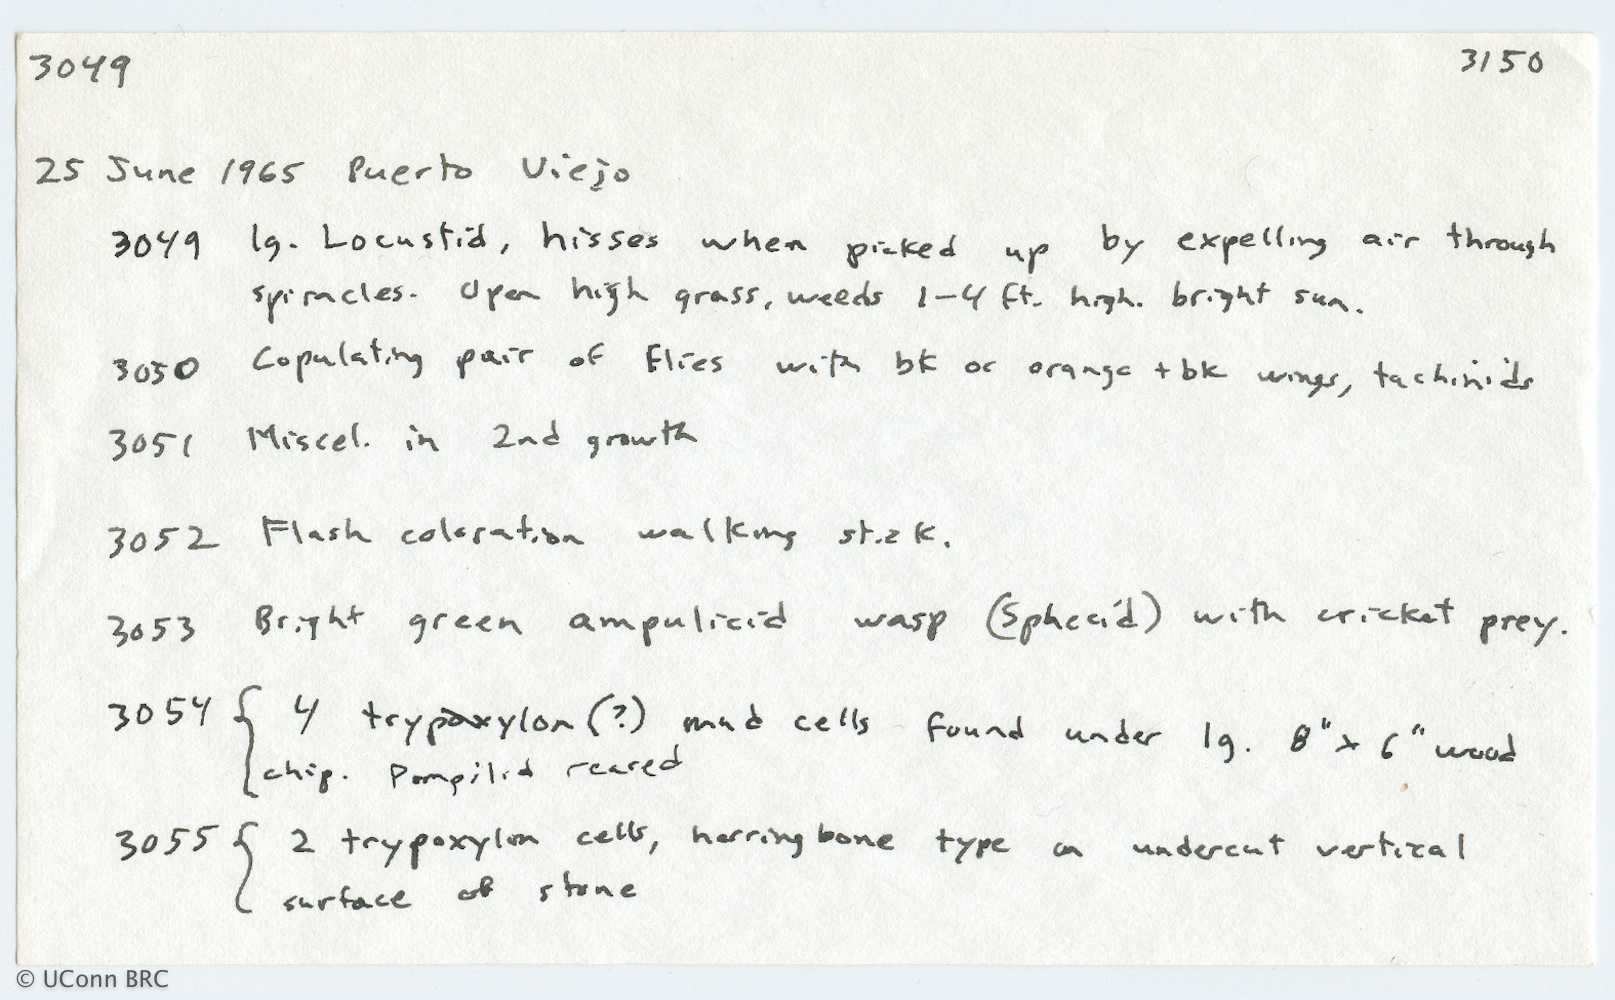 3049 3150
25 June 1965 Puerto Viejo
3049 lg. Locustid, hisses when picked up by expelling air through
spiracles. Open high grass, weeds 1-4 ft. high. bright sun.
3050 Copulating pair of flies with bk or orange + bk wings, tachinids
3051 Miscel. in 2nd growth
3052 Flash coloration walking stick.
3053 Bright green ampulicid wasp (Sphecid) with cricket prey.
3054 { 4 trypoxylon (?) mud cells found under lg. 8" x 6" wood
chip. Pompilid reared
3055 { 2 trypoxylon cells, herringbone type on undercut vertical
surface of stone
© UConn BRC